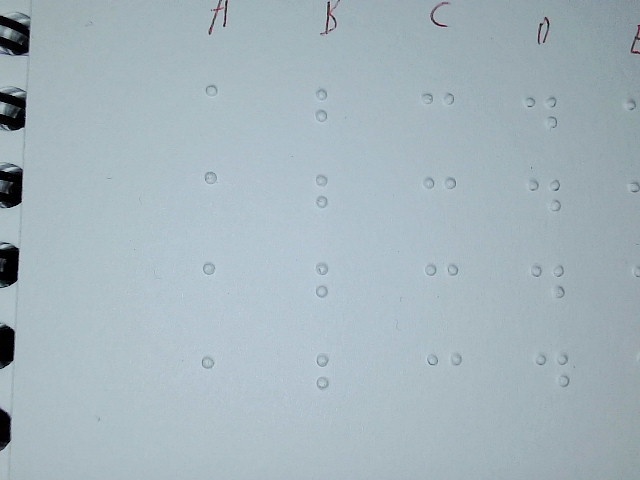 A B C D E
⠁ ⠃ ⠉ ⠙
⠁ ⠃ ⠉ ⠙
⠁ ⠃ ⠉ ⠙
⠁ ⠃ ⠉ ⠙